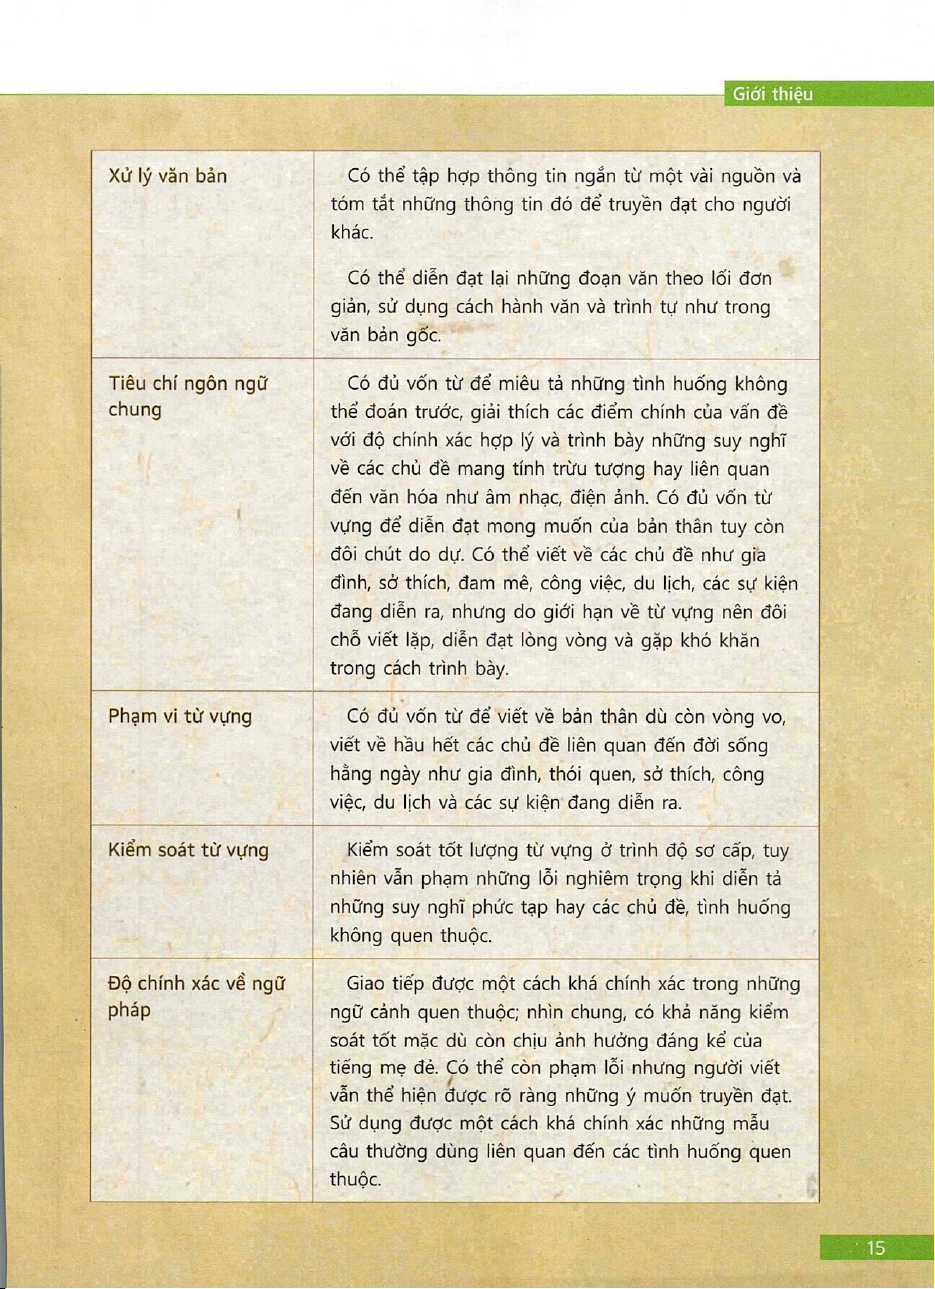 Giới thiệu
Xử lý văn bản
Có thể tập hợp thông tin ngắn từ một vài nguồn và
tóm tắt những thông tin đó để truyền đạt cho người
khác.
Có thể diễn đạt lại những đoạn văn theo lối đơn
giản, sử dụng cách hành văn và trình tự như trong
văn bản gốc.
Tiêu chí ngôn ngữ
chung
Có đủ vốn từ để miêu tả những tình huống không
thể đoán trước, giải thích các điểm chính của vấn đề
với độ chính xác hợp lý và trình bày những suy nghĩ
về các chủ đề mang tính trừu tượng hay liên quan
đến văn hóa như âm nhạc, điện ảnh. Có đủ vốn từ
vựng để diễn đạt mong muốn của bản thân tuy còn
đôi chút do dự. Có thể viết về các chủ đề như gia
đình, sở thích, đam mê, công việc, du lịch, các sự kiện
đang diễn ra, nhưng do giới hạn về từ vựng nên đôi
chỗ viết lặp, diễn đạt lòng vòng và gặp khó khăn
trong cách trình bày.
Phạm vi từ vựng
Có đủ vốn từ để viết về bản thân dù còn vòng vo,
viết về hầu hết các chủ đề liên quan đến đời sống
hằng ngày như gia đình, thói quen, sở thích, công
việc, du lịch và các sự kiện đang diễn ra.
Kiểm soát từ vựng
Kiểm soát tốt lượng từ vựng ở trình độ sơ cấp, tuy
nhiên vẫn phạm những lỗi nghiêm trọng khi diễn tả
những suy nghĩ phức tạp hay các chủ đề, tình huống
không quen thuộc.
Độ chính xác về ngữ
pháp
Giao tiếp được một cách khá chính xác trong những
ngữ cảnh quen thuộc; nhìn chung, có khả năng kiểm
soát tốt mặc dù còn chịu ảnh hưởng đáng kể của
tiếng mẹ đẻ. Có thể còn phạm lỗi nhưng người viết
vẫn thể hiện được rõ ràng những ý muốn truyền đạt.
Sử dụng được một cách khá chính xác những mẫu
câu thường dùng liên quan đến các tình huống quen
thuộc.
15